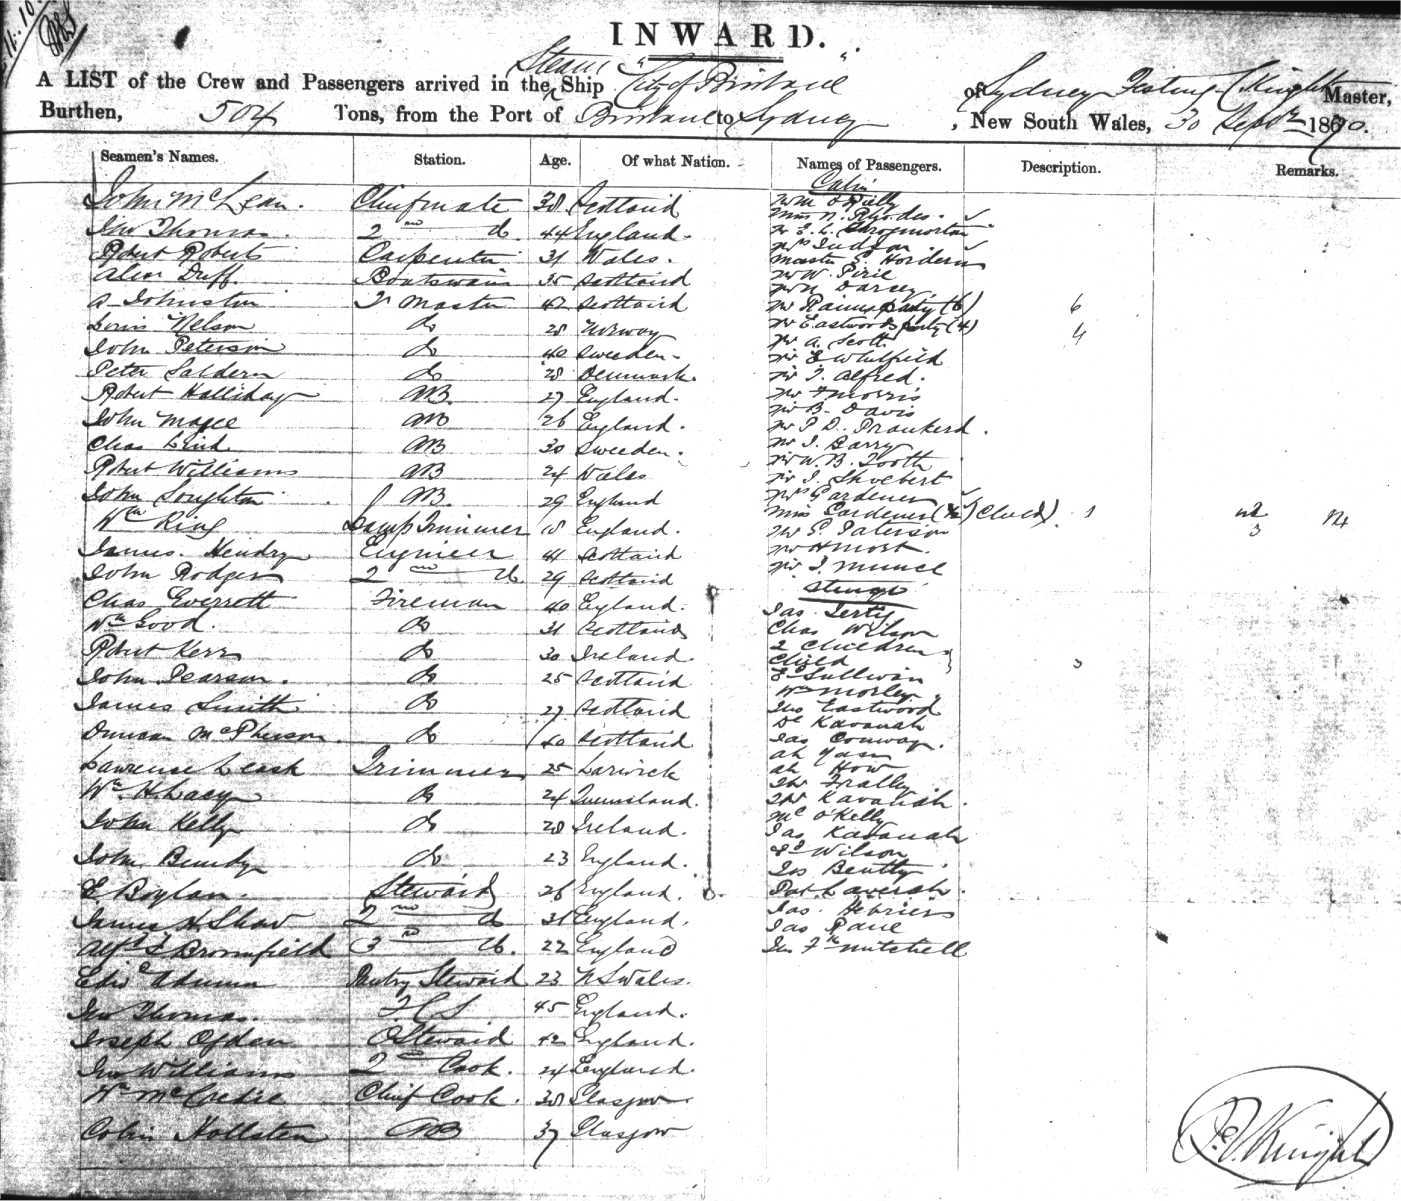 INWARD.
A LIST of the Crew and Passengers arrived in the Steam Ship "City of Brisbane" of Sydney Knight Master,
Burthen, 504 Tons, from the Port of Brisbane to Sydney, New South Wales, 30 Septr 1870.
Seamen's Names. Station. Age. Of what Nation. Names of Passengers. Description. Remarks.
Cabin
John McLean. Chief mate 38 Scotland Mr Wm O'Reilly
Miss N. Rhodes.
Jno Thomas 2nd do. 44 England. Mr E. L. Throgmorton
Robert Roberts Carpenter 31 Wales. Mrs Judson
Master E. Hordern
Alexr Duff. Boatswain 35 Scotland Mr W. Pirie
Mr N Darcey
A. Johnston Master 42 Scotland Mr Rainys party (6) 6
Louis Nelson do 28 Norway Mr Eastwoods party (4) 4
John Peterson do 40 Sweeden. Mr A. Scott
Mr E Whitfield
Peter Saldern do 28 Denmark. Mr T. Alfred.
Robert Halliday AB. 27 England. Mr F Morris
Mr B. Davis
John Magee AB 26 England. Mr P D. Prankerd.
Chas Lind AB 30 Sweeden. Mr J. Barry
Mr W. B. Tooth
Robert Williams AB 24 Wales Mr J. Shoebert
John Soughton AB. 29 England Mrs Gardener
Wm King Lamp Trimmer 18 England. Miss Gardener (Child). 1
Mr G. Paterson
James. Hendry Engineer 41 Scotland Mr H Mort.
John Rodger 2nd do. 29 Scotland Mr J. Munce
Steerage
Chas Everrett Fireman 40 England. Jas Terty
Wm Good. do 31 Scotland Chas Wilson
2 Children
Robert Kerr do 30 Ireland. Child 3
John Pearson. do 25 Scotland Ed Sullivan
Wm Morley
James Smith do 27 Scotland Jno Eastwood
Dl Kavanah
Duncan McPherson. do 40 Scotland Jas Conway.
Ah Yam
Lawrence Leask Trimmer 25 Larwick Ah How
Wm H. Lacy do 24 Queensland. Thos Fralley
Thos Kavanah.
John Kelly do 28 Ireland. Ml O'Kelly
Jas Kavanah
John Bundy do 23 England. Jd Wilson
Jos Bentty
E Boylan. Steward 26 England. Pat Laverah.
James H Shaw 2nd do 31 England. Jas. Hebrien
Jas Rane
Alfd S Broomfield 3rd do. 22 England Jno Fk Mitchell
Edwd Adams Pantry Steward 23 N S Wales.
Jno Thomas. F.C.S 45 England.
Joseph Ogden OSteward 42 England.
Jno Williams 2nd Cook. 24 England.
Wm McCredie Chief Cook. 38 Glasgow.
Colin Hollsten AB 37 Glasgow
Knight